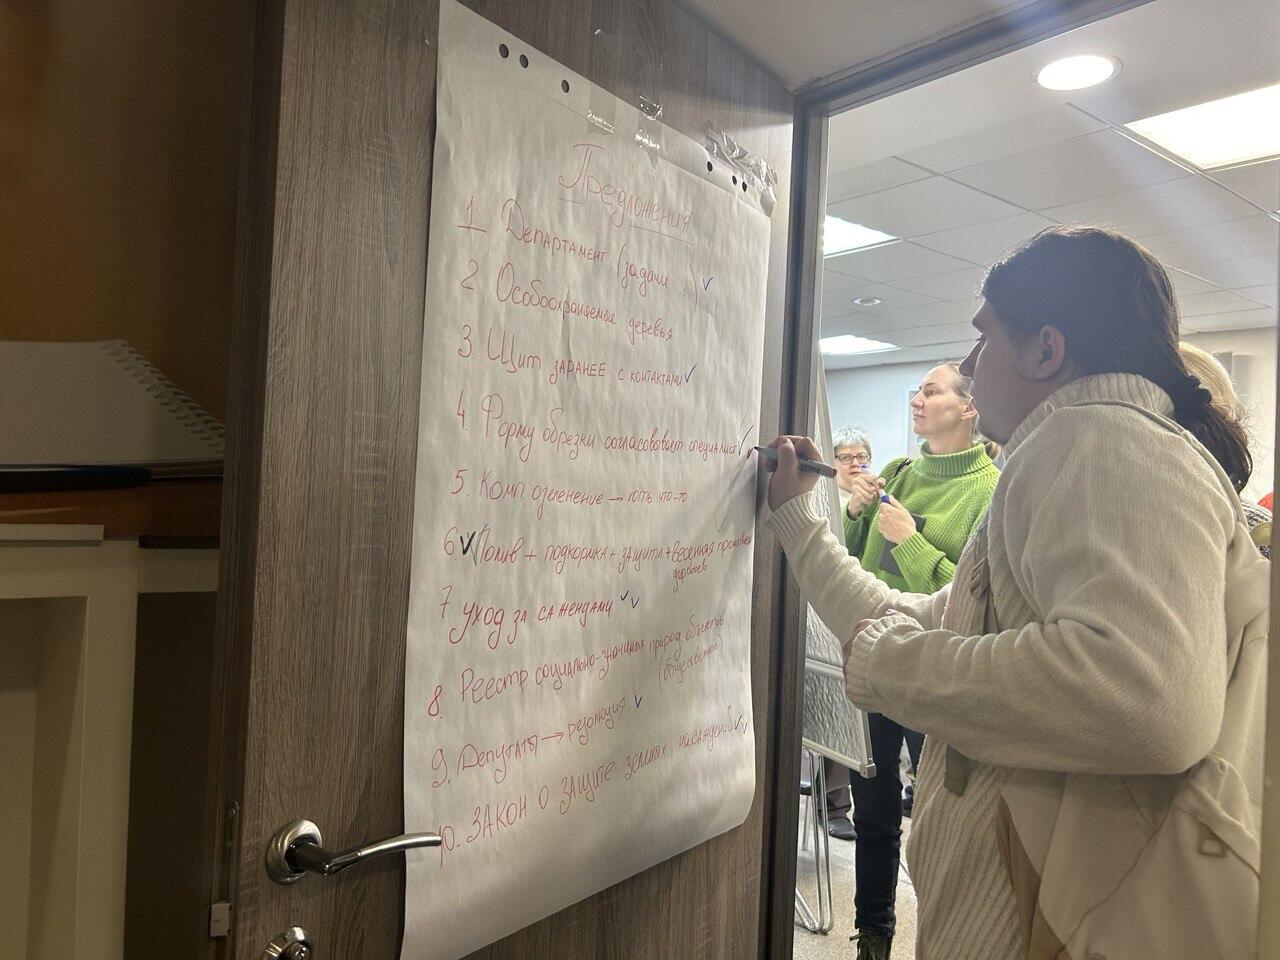 Предложения
1 Департамент (задачи ...)
2 Особоохраняемые деревья
3 Щит заранее с контактами
4. Форму обрезки согласовывает специалист
5. Комп озеленение → хоть что-то
6 Полив + подкормка + защита + весенняя промывка
деревьев
7 уход за саженцами
8. Реестр социально-значимых природ. объектов
9. Депутаты → резолюция
10. Закон о защите зелёных насаждений